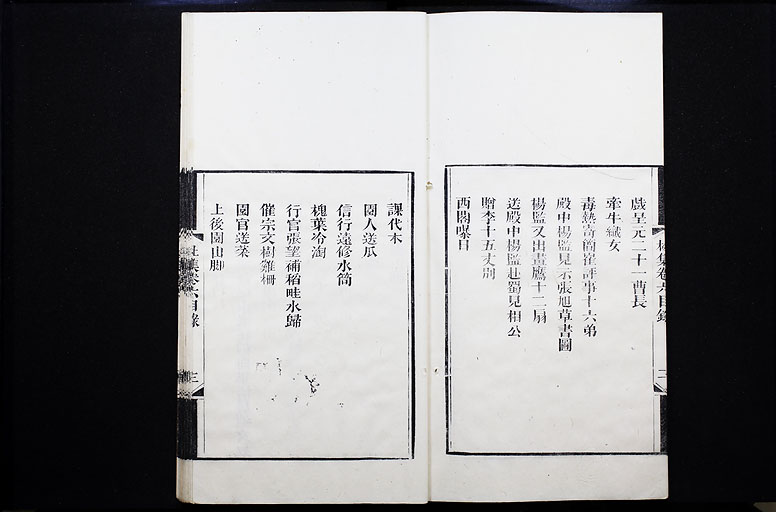 戲呈元二十一曹長
牽牛織女
毒熱寄簡崔評事十六弟
殿中楊監見示張旭草書圖
楊監又出畫鷹十二扇
送殿中楊監赴蜀見相公
贈李十五丈別
西閣曝日
課伐木
園人送瓜
信行遠修水筒
槐葉冷淘
行官張望補稻畦水歸
催宗文樹雞柵
園官送菜
上後園山脚
杜集卷六目錄
二
杜集卷六目錄
三